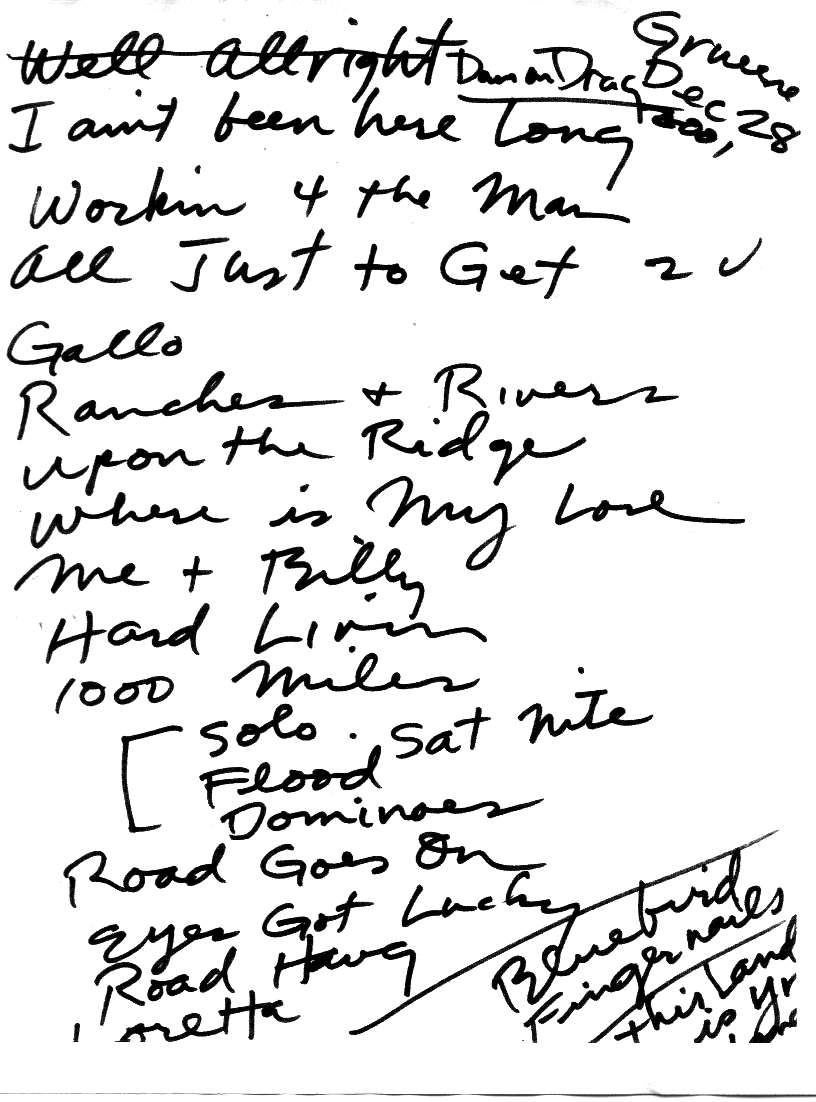 Well Allright
Gruene
Dec 28
I aint been here long
Workin 4 the Man
All Just to Get 2 U
Gallo
Ranches + Rivers
upon the Ridge
where is my Love
me + Billy
Hard Livin
1000 miles
Solo . Sat Nite
Flood
Dominoes
Road Goes On
eyes Got Lucky
Road Hawg
Loretta
Bluebird
Fingernails
this Land
is yr